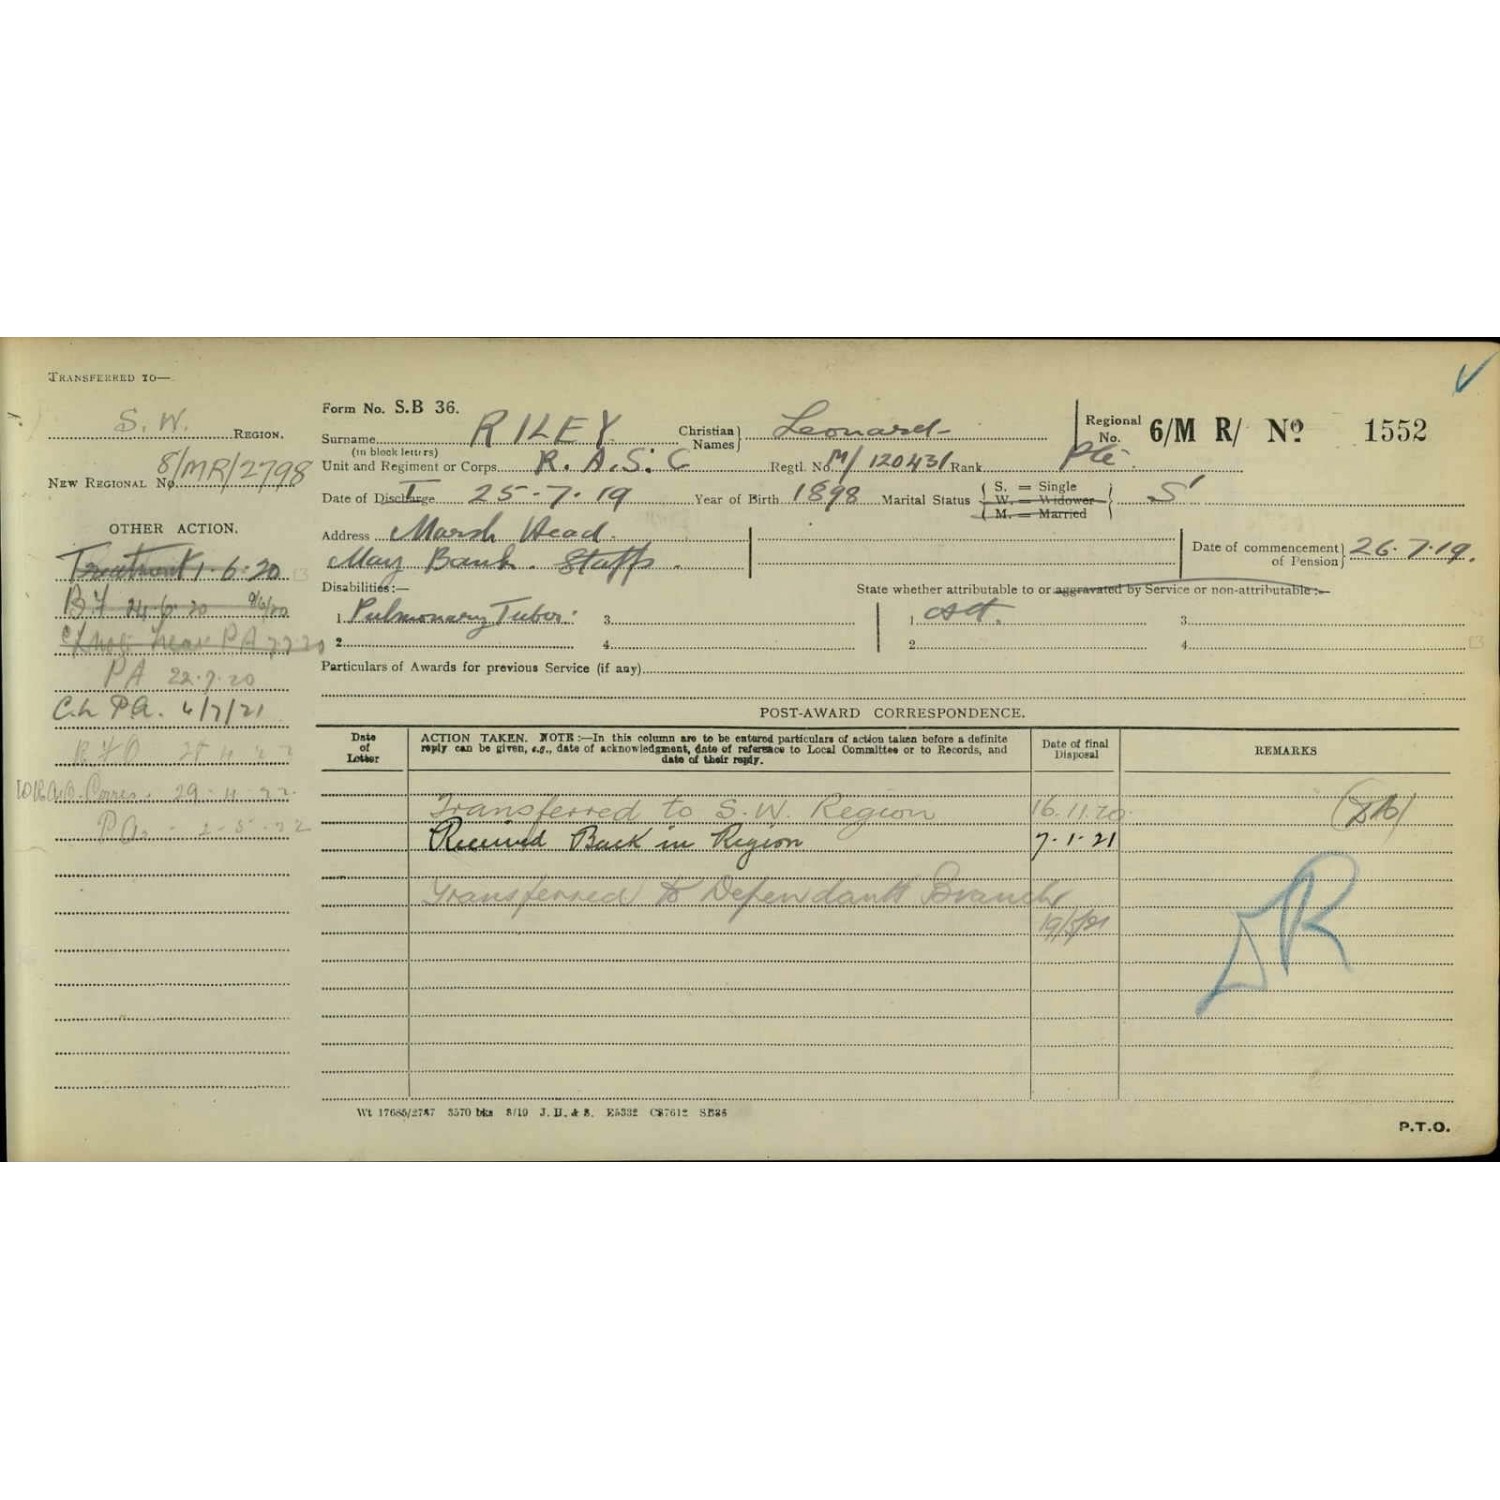 TRANSFERRED TO—
S. W. REGION.
NEW REGIONAL No. 8/MR/2798
OTHER ACTION.
Treatment 1.6.20
B.F 24.6.20
PA 22.7.20
C.L PA. 4/7/21
29.4.22
PA 2-5-22
Form No. S.B 36.
Surname RILEY Christian Names} Leonard
(in block letters)
Regional No. 6/M R/ No 1552
Unit and Regiment or Corps R.A.S.C Regtl. No. M/120431 Rank Pte.
Date of Discharge 25-7-19 Year of Birth 1898 Marital Status { S. = Single W. = Widower M. = Married } S
Address Marsh Head.
May Bank. Staffs.
Date of commencement of Pension} 26.7.19.
Disabilities:— State whether attributable to or aggravated by Service or non-attributable:—
1 Pulmonary Tuber: 3 1 Att. 3
2 4 2 4
Particulars of Awards for previous Service (if any)
POST-AWARD CORRESPONDENCE.
Date of Letter
ACTION TAKEN. NOTE:—In this column are to be entered particulars of action taken before a definite
reply can be given, e.g., date of acknowledgment, date of reference to Local Committee or to Records, and
date of their reply.
Date of final Disposal
REMARKS
Transferred to S.W. Region 16.11.20
Received Back in Region 7.1.21
Transferred to Dependants Branch
19/5/21
R
Wt 17685/2787 3570 bks 8/19 J. H. & S. E5332 C37612 SB36
P.T.O.